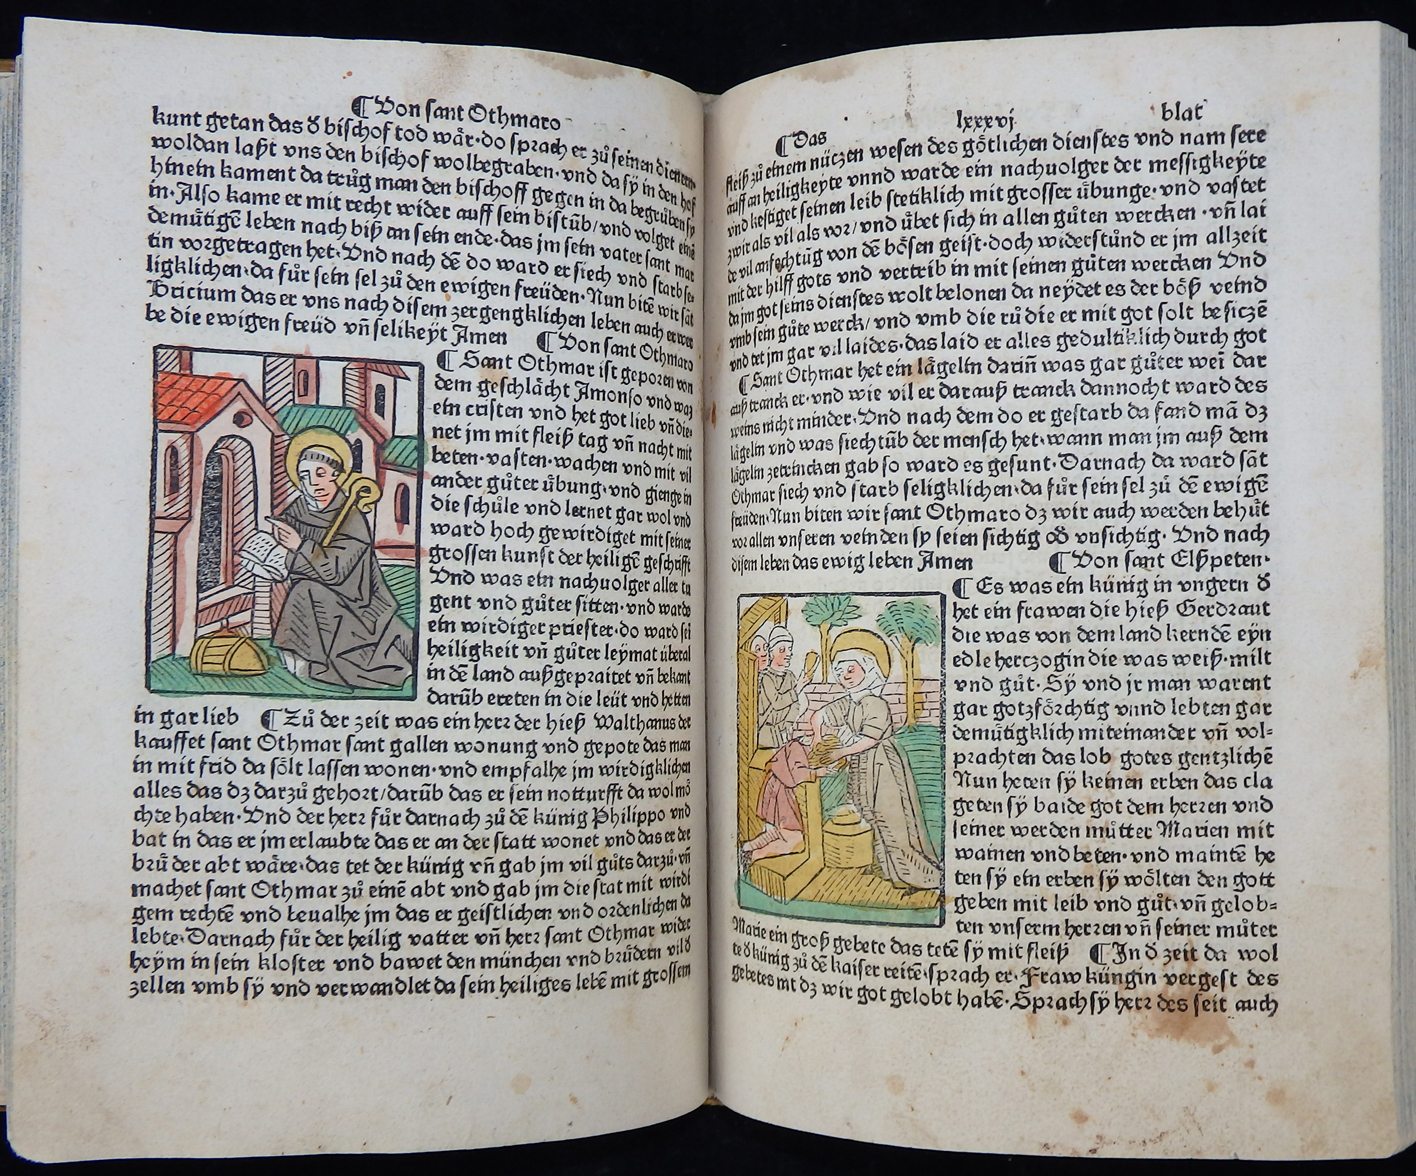 ¶ Von sant Othmaro
kunt getan das d̕ bischof tod wår· do sprach er zů seinen dienern·
woldan laßt vns den bischof wolbegraben· vnd da sÿ in den hof
hinein kament da trůg man den bischoff gegen in da begrůben sÿ
in· Also kame er mit recht wider auff sein bistūb/ vnd volget einē
demůtigē leben nach biß an sein ende· das jm sein vater sant mar
tin vorgetragen het· Vnd nach dē do ward er siech vnd starb se-
ligklichen· da fůr sein sel zů den ewigen freüden· Nun bitē wir sāt
Bricium das er vns nach disem zergengklichen leben auch erwer
be die ewigen freüd vn̄ selikeÿt Amen ¶ Von sant Othmaro
¶ Sant Othmar ist geporen von
dem geschlächt Amonso vnd waz
ein cristen vnd het got lieb vn̄ die-
net jm mit fleiß tag vn̄ nacht mit
beten· vasten· wachen vnd mit vil
ander gůter ůbung· vnd gienge in
die schůle vnd lernet gar wol vnd
ward hoch gewirdiget mit seiner
grossen kunst der heiligē geschrifft
Vnd was ein nachuolger aller tu
gent vnd gůter sitten· vnd warde
ein wirdiger priester· do ward sei
heiligkeit vn̄ gůter leÿmat ůberal
in dē land außgepraitet vn̄ bekant
darūb ereten in die leüt vnd hetten
in gar lieb ¶ Zů der zeit was ein herr der hieß Walthanus der
kauffet sant Othmar sant gallen wonung vnd gepote das man
in mit frid da sölt lassen wonen· vnd empfalhe jm wirdigklichen
alles das dz darzů gehort/ darūb das er sein notturfft da wol mö
chte haben· Vnd der herr fůr darnach zů dē künig Philippo vnd
bat in das er jm erlaubte das er an der statt wonet vnd das er der
brů der abt wåre· das tet der künig vn̄ gab jm vil gůts darzů· vn̄
machet sant Othmar zů einē abt vnd gab jm die stat mit wirdi
gem rechtē vnd beualhe jm das er geistlichen vnd ordenlichen da
lebte· Darnach fůr der heilig vatter vn̄ herr sant Othmar wider
heÿm in sein kloster vnd bawet den münchen vnd brůdern vil d̕
zellen vmb sÿ vnd verwandlet da sein heiliges lebē mit grossem
¶ Das lxxxvj blat
fleiß zů einem nüczen wesen des götlichen dienstes vnd nam sere
auff an heiligkeÿte vnnd warde ein nachuolger der messigkeÿte
vnd kestiget seinen leib stetiklich mit grosser ůbunge· vnd vastet
zwir als vil als vor/ vnd ůbet sich in allen gůten wercken· vn̄ lai
de vil anfechtūg von dē bösen geist· doch widerstůnd er jm allzeit
mit der hilff gots vnd vertrib in mit seinen gůten wercken Vnd
da jm got seins dienstes wolt belonen da neÿdet es der böß veind
vmb sein gůte werck/ vnd vmb die rů die er mit got solt besiczē
vnd tet jm gar vil laides· das laid er alles gedultiklich durch got
¶ Sant Othmar het ein lågelin darin̄ was gar gůter wei̅ dar
auß tranck er· vnd wie vil er darauß tranck dannocht ward des
weins nicht minder· Vnd nach dem do er gestarb da fand mā dz
lågelin vnd was siechtūb der mensch het· wann man jm auß dem
lågelin zetrincken gab so ward es gesunt· Darnach da ward sāt
Othmar siech vnd starb seligklichen· da fůr sein sel zů dē ewigē
freüden· Nun biten wir sant Othmaro dz wir auch werden behůt
vor allen vnseren veinden sy seien sichtig od̕ vnsichtig· Vnd nach
disem leben das ewig leben Amen ¶ Von sant Elßpeten·
¶ Es was ein künig in vngern d̕
het ein frawen die hieß Gerdraut
die was von dem land kerndē eÿn
edle herczogin die was weiß· milt
vnd gůt· Sÿ vnd jr man warent
gar gotzförchtig vnnd lebten gar
demůtigklich miteinander vn̄ vol-
prachten das lob gotes gentzlichē
Nun heten sÿ keinen erben das cla
geten sÿ baide got dem herren vnd
seiner werden můtter Marien mit
wainen vnd beten· vnd maintē he
ten sÿ ein erben sÿ wölten den gott
geben mit leib vnd gůt· vn̄ gelob-
ten vnserm herren vn̄ seiner můter
Marie ein groß gebete das tetē sÿ mit fleiß ¶ In d̕ zeit da wol
te d̕ künig zů dē kaiser reitē· sprach er· Fraw küngin vergest des
gebetes nit dz wir got gelobt habē· Sprach sÿ herr des seit auch